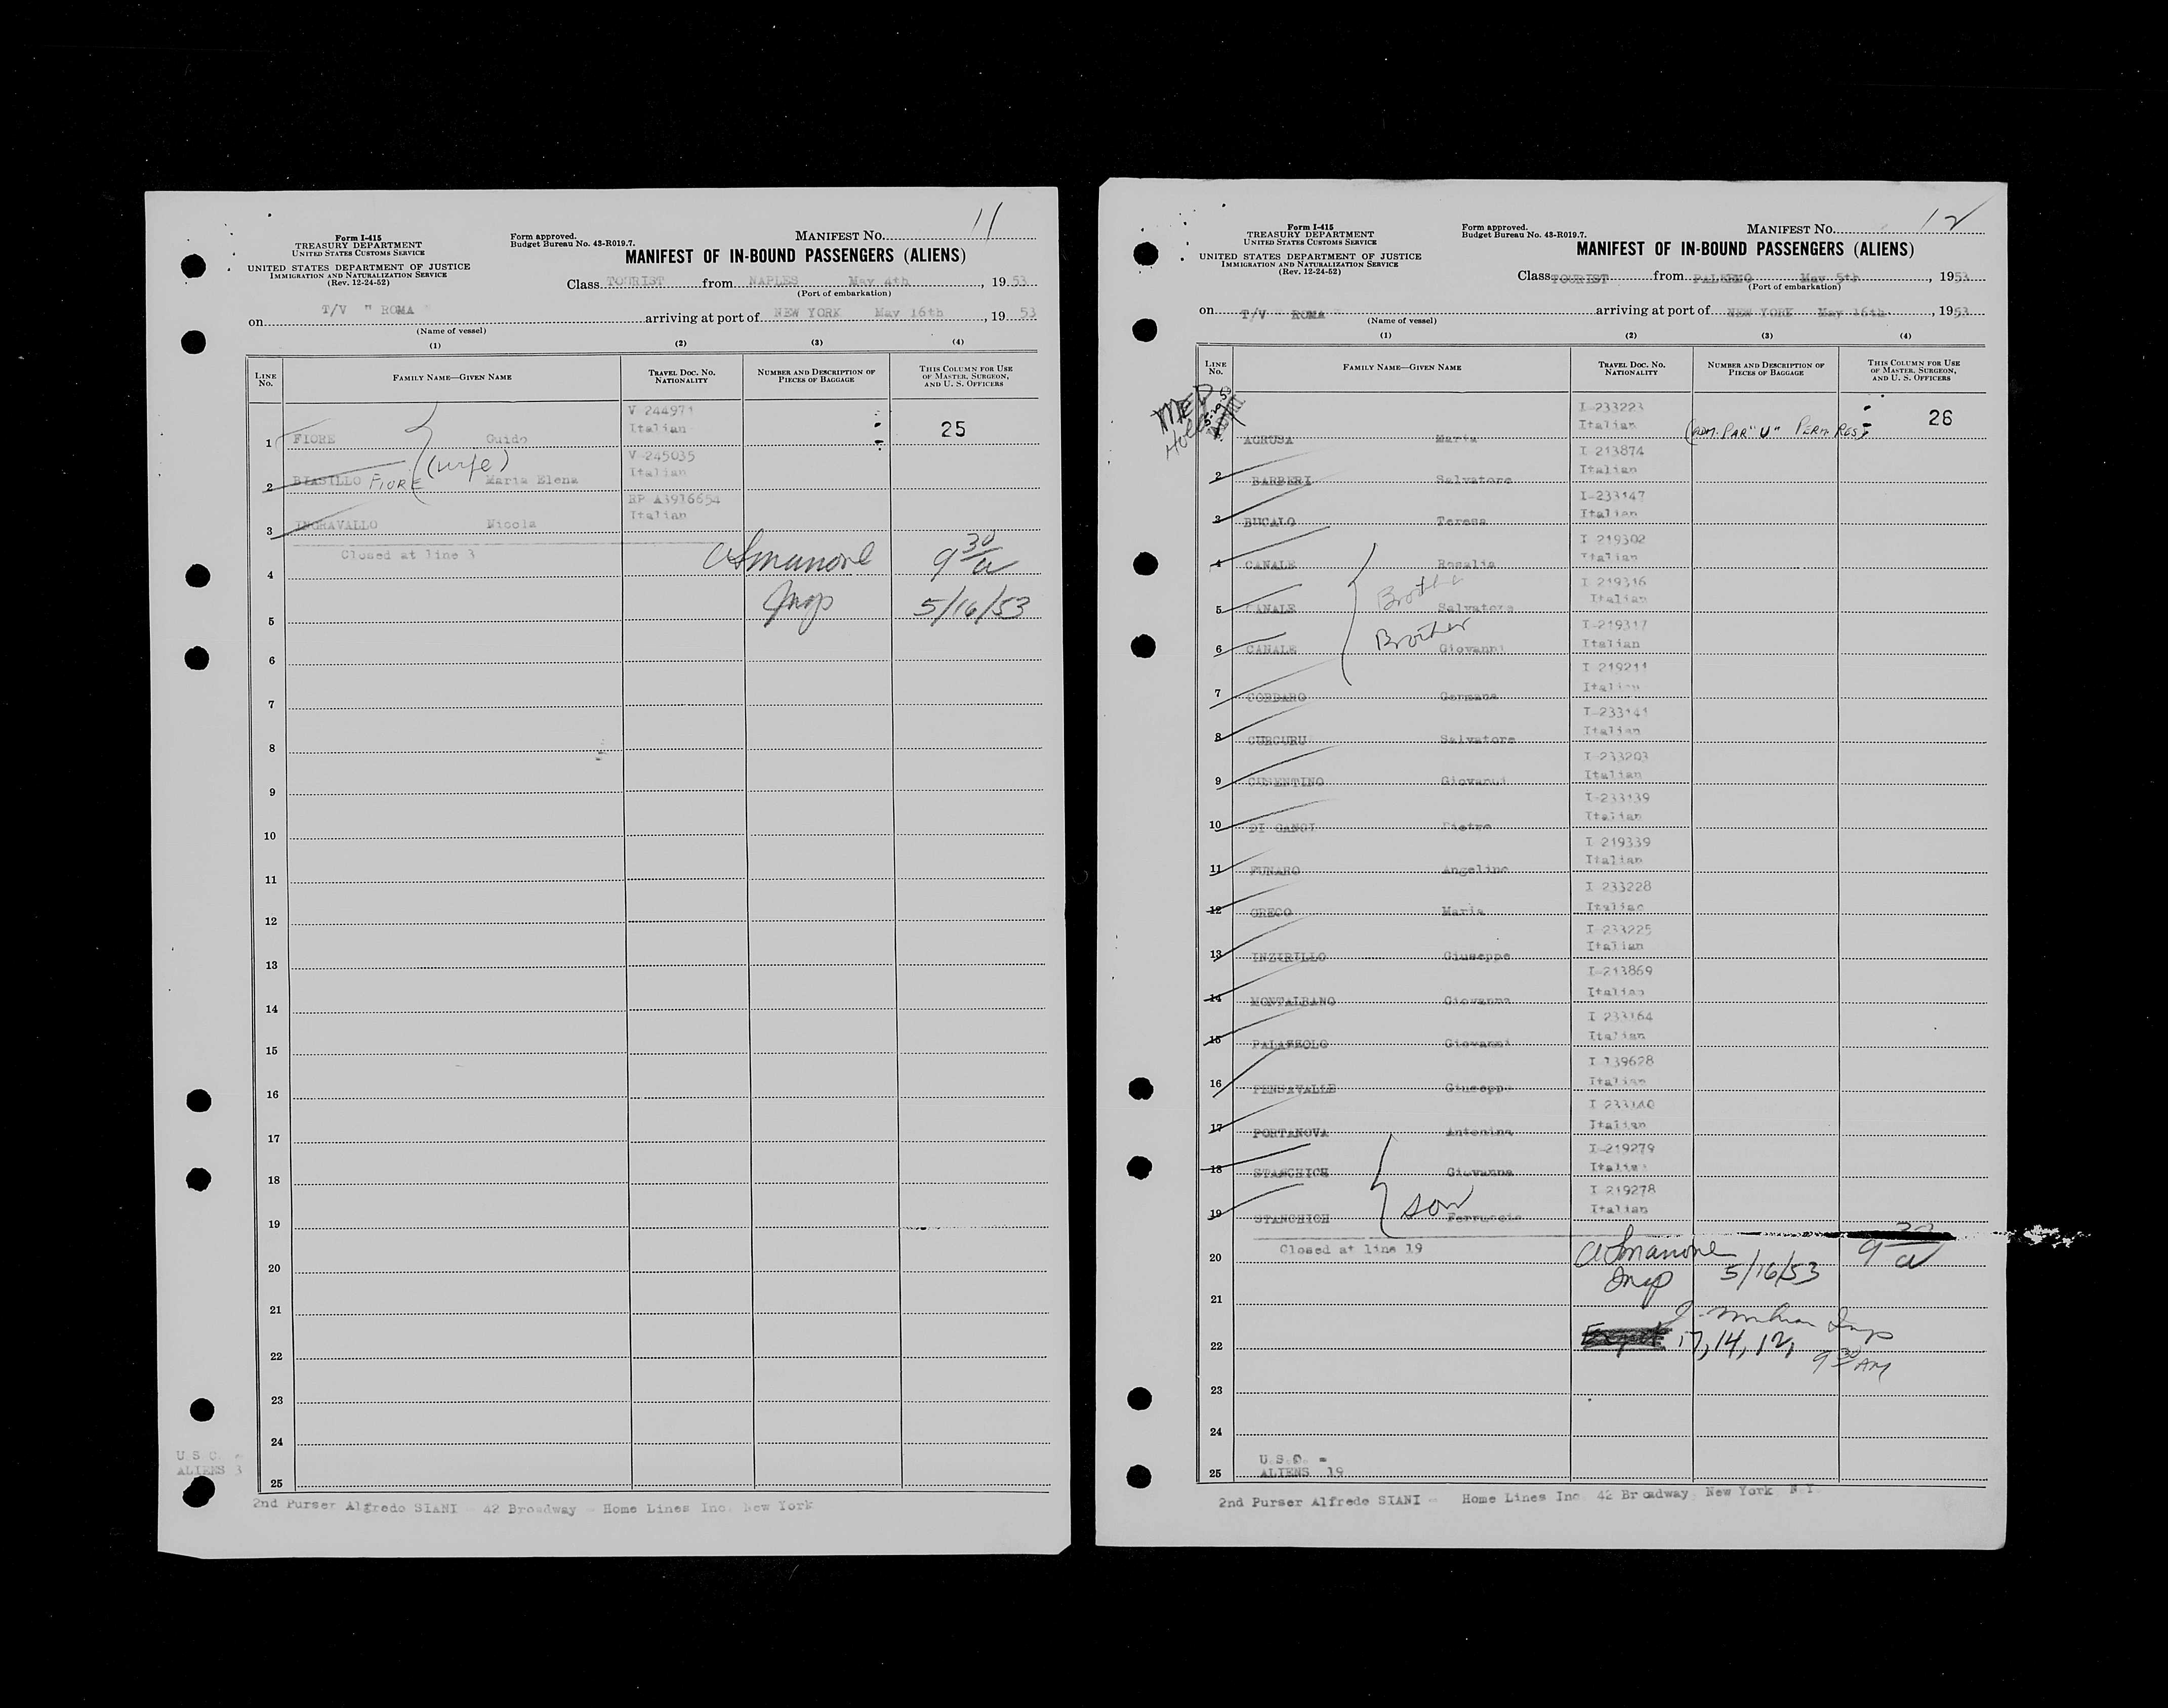 11
Form I-415
TREASURY DEPARTMENT
UNITED STATES CUSTOMS SERVICE
UNITED STATES DEPARTMENT OF JUSTICE
IMMIGRATION AND NATURALIZATION SERVICE
(Rev. 12-24-52)
Form approved.
Budget Bureau No. 43-R019.7.
MANIFEST NO.
MANIFEST OF IN-BOUND PASSENGERS (ALIENS)
Class TOURIST from NAPLES May 4th, 1953
(Port of embarkation)
on T/V " ROMA " arriving at port of NEW YORK May 16th, 1953
(Name of vessel)
(1) (2) (3) (4)
LINE NO.
FAMILY NAME—GIVEN NAME
TRAVEL DOC. NO. NATIONALITY
NUMBER AND DESCRIPTION OF PIECES OF BAGGAGE
THIS COLUMN FOR USE OF MASTER, SURGEON, AND U. S. OFFICERS
V 244971
Italian
1 FIORE Guido 25
(wife)
V 245035
Italian
2 BIASILLO FIORE Maria Elena
RP A3916654
Italian
3 INGRAVALLO Nicola
Closed at line 3
4 9 30/a
5 Insp 5/16/53
6
7
8
9
10
11
12
13
14
15
16
17
18
19
20
21
22
23
24
25
U S C. -
ALIENS 3
2nd Purser Algredo SIANI - 42 Broadway - Home Lines Inc. New York
12
Form I-415
TREASURY DEPARTMENT
UNITED STATES CUSTOMS SERVICE
UNITED STATES DEPARTMENT OF JUSTICE
IMMIGRATION AND NATURALIZATION SERVICE
(Rev. 12-24-52)
Form approved.
Budget Bureau No. 43-R019.7.
MANIFEST NO.
MANIFEST OF IN-BOUND PASSENGERS (ALIENS)
Class TOURIST from PALERMO May 5th, 1953
(Port of embarkation)
on T/V " ROMA " arriving at port of NEW YORK May 16th, 1953
(Name of vessel)
(1) (2) (3) (4)
LINE NO.
FAMILY NAME—GIVEN NAME
TRAVEL DOC. NO. NATIONALITY
NUMBER AND DESCRIPTION OF PIECES OF BAGGAGE
THIS COLUMN FOR USE OF MASTER, SURGEON, AND U. S. OFFICERS
MED
Hold
I-233223
Italian
AGRUSA Maria (ADM. PAR "U" PERM RES) 26
I 213874
Italian
2 BARBERI Salvatore
I-233147
Italian
3 BUCALO Teresa
I 219302
Italian
4 CANALE Rosalia
I 219316
Italian
5 CANALE Brother Salvatore
I-219317
Italian
6 CANALE Brother Giovanni
I 219211
Italian
7 CORDARO Germana
I-233141
Italian
8 CURCURU Salvatore
I-233203
Italian
9 CUSENTINO Giovanni
I-233139
Italian
10 DI GANGI Pietro
I 219339
Italian
11 FUNARO Angelino
I 233228
Italian
12 GRECO Maria
I 233225
Italian
13 INZIRILLO Giuseppe
I-213869
Italian
14 MONTALBANO Giovanna
I 233164
Italian
15 PALAZZOLO Giovanni
I 139628
Italian
16 PENSAVALLE Giuseppe
I 233140
Italian
17 PORTANOVA Antonina
I-219279
Italian
18 STANCHICH Giovanna
I 219278
Italian
19 STANCHICH son Ferruccio
Closed at line 19
20 9 30/a
Insp 5/16/53
21
Insp
22 17, 14, 12,
9 30 AM
23
24
U.S.C. -
ALIENS 19
25
2nd Purser Alfredo SIANI - Home Lines Inc 42 Broadway New York N.Y.